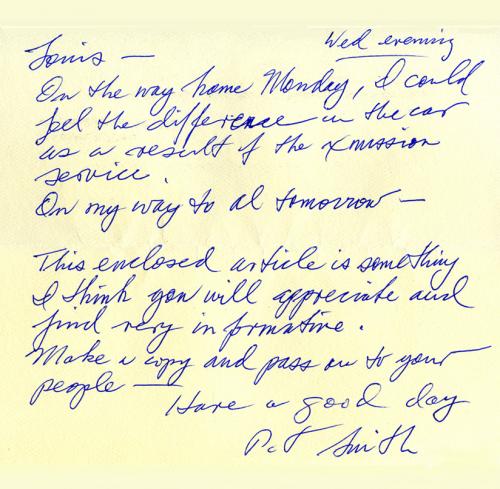 Wed evening
Louis —
On the way home Monday, I could
feel the difference in the car
as a result of the xmission
service.
On my way to al tomorrow —
This enclosed article is something
I think you will appreciate and
find very informative.
Make a copy and pass on to your
people —
Have a good day
Pat Smith